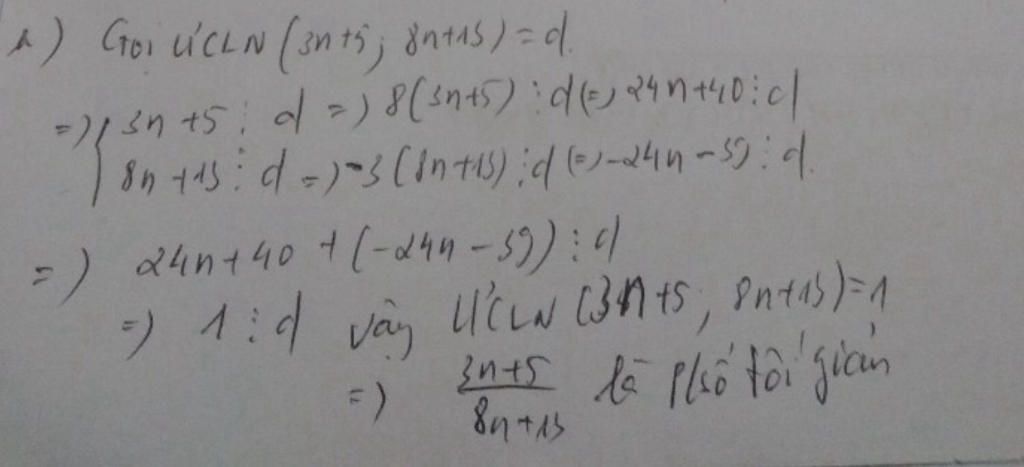 a) Gọi ƯCLN (3n+5; 8n+13) = d.
=> { 3n+5 ⋮ d => 8(3n+5) ⋮ d (=) 24n+40 ⋮ d
8n+13 ⋮ d => -3(8n+13) ⋮ d (=) -24n-39 ⋮ d.
=> 24n+40 + (-24n-39) ⋮ d
=> 1 ⋮ d vậy ƯCLN (3n+5, 8n+13) = 1
=> 3n+5 / 8n+13 là p/số tối giản